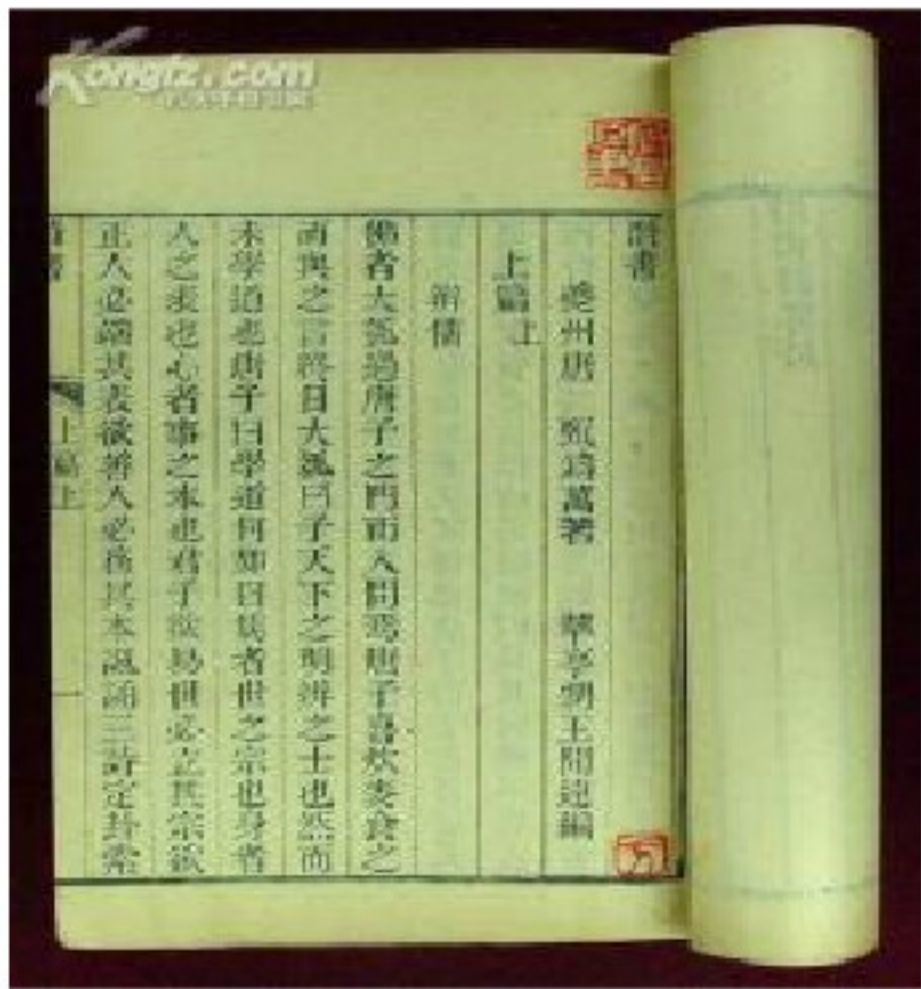 Kongfz.com
潛書
夔州唐 甄鑄萬著 壻王聞遠編
上篇上
辨儒
佛者大瓠過唐子之門而入問焉唐子喜炊麥食之
而與之言終日大瓠曰子天下之明辨之士也然而
未學道也唐子曰學道何如曰儒者世之宗也身者
人之表也心者事之本也君子欲易世必立其宗欲
正人必端其表欲善人必務其本諷誦三詩定卦索
上篇上
一